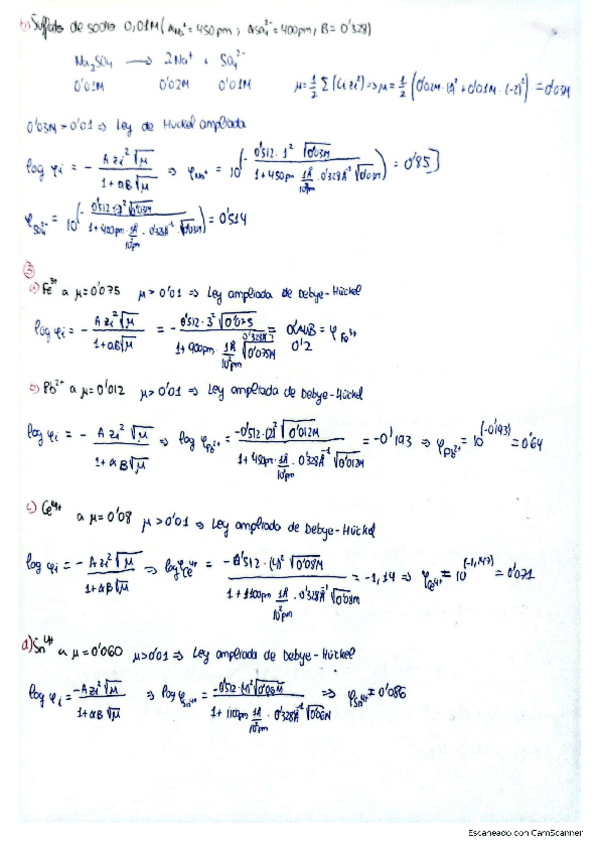 b) Sulfato de sodio 0,01M (aNa⁺ = 450pm, aSO₄²⁻ = 400pm, B = 0'328)
Na₂SO₄ → 2Na⁺ + SO₄²⁻
0'01M 0'02M 0'01M μ = 1/2 Σ(Ci zi²) ⇒ μ = 1/2 (0'02M·(1)² + 0'01M·(-2)²) = 0'03M
0'03M > 0'01 ⇒ Ley de Hückel ampliada
log φi = - A zi² √μ / 1 + αB√μ ⇒ φNa⁺ = 10^(- 0'512·1² √0'03M / 1 + 450pm 1Å/10²pm · 0'328Å⁻¹ √0'03M) = 0'85
φSO₄²⁻ = 10^(- 0'512·(-2)² √0'03M / 1 + 400pm · 1Å/10²pm · 0'328Å⁻¹ √0'03M) = 0'514
③
a) Fe³⁺ a μ = 0'075 μ > 0'01 ⇒ Ley ampliada de Debye-Hückel
log φi = - A zi² √μ / 1 + αB√μ = - 0'512·3² √0'075 / 1 + 900pm · 1Å/10²pm 0'328Å⁻¹ √0'075M = = φFe³⁺
0'2
b) Pb²⁺ a μ = 0'012 μ > 0'01 ⇒ Ley ampliada de Debye-Hückel
log φi = - A zi² √μ / 1 + αB√μ ⇒ log φPb²⁺ = -0'512·(2)² √0'012M / 1 + 450pm · 1Å/10²pm · 0'328Å⁻¹ √0'012M = -0'193 ⇒ φPb²⁺ = 10^(-0'193) = 0'64
c) Ce⁴⁺ a μ = 0'08 μ > 0'01 ⇒ Ley ampliada de Debye-Hückel
log φi = - A zi² √μ / 1 + αB√μ ⇒ log φCe⁴⁺ = - 0'512·(4)² √0'08M / 1 + 1100pm 1Å/10²pm · 0'328Å⁻¹ √0'08M = -1,14 ⇒ φCe⁴⁺ = 10^(-1,147) = 0'071
d) Sn⁴⁺ a μ = 0'060 μ > 0'01 ⇒ Ley ampliada de Debye-Hückel
log φi = - A zi² √μ / 1 + αB√μ ⇒ log φSn⁴⁺ = -0'512·(4)² √0'06M / 1 + 1100pm · 1Å/10²pm · 0'328Å⁻¹ √0'06M ⇒ φSn⁴⁺ = 0'086
Escaneado con CamScanner